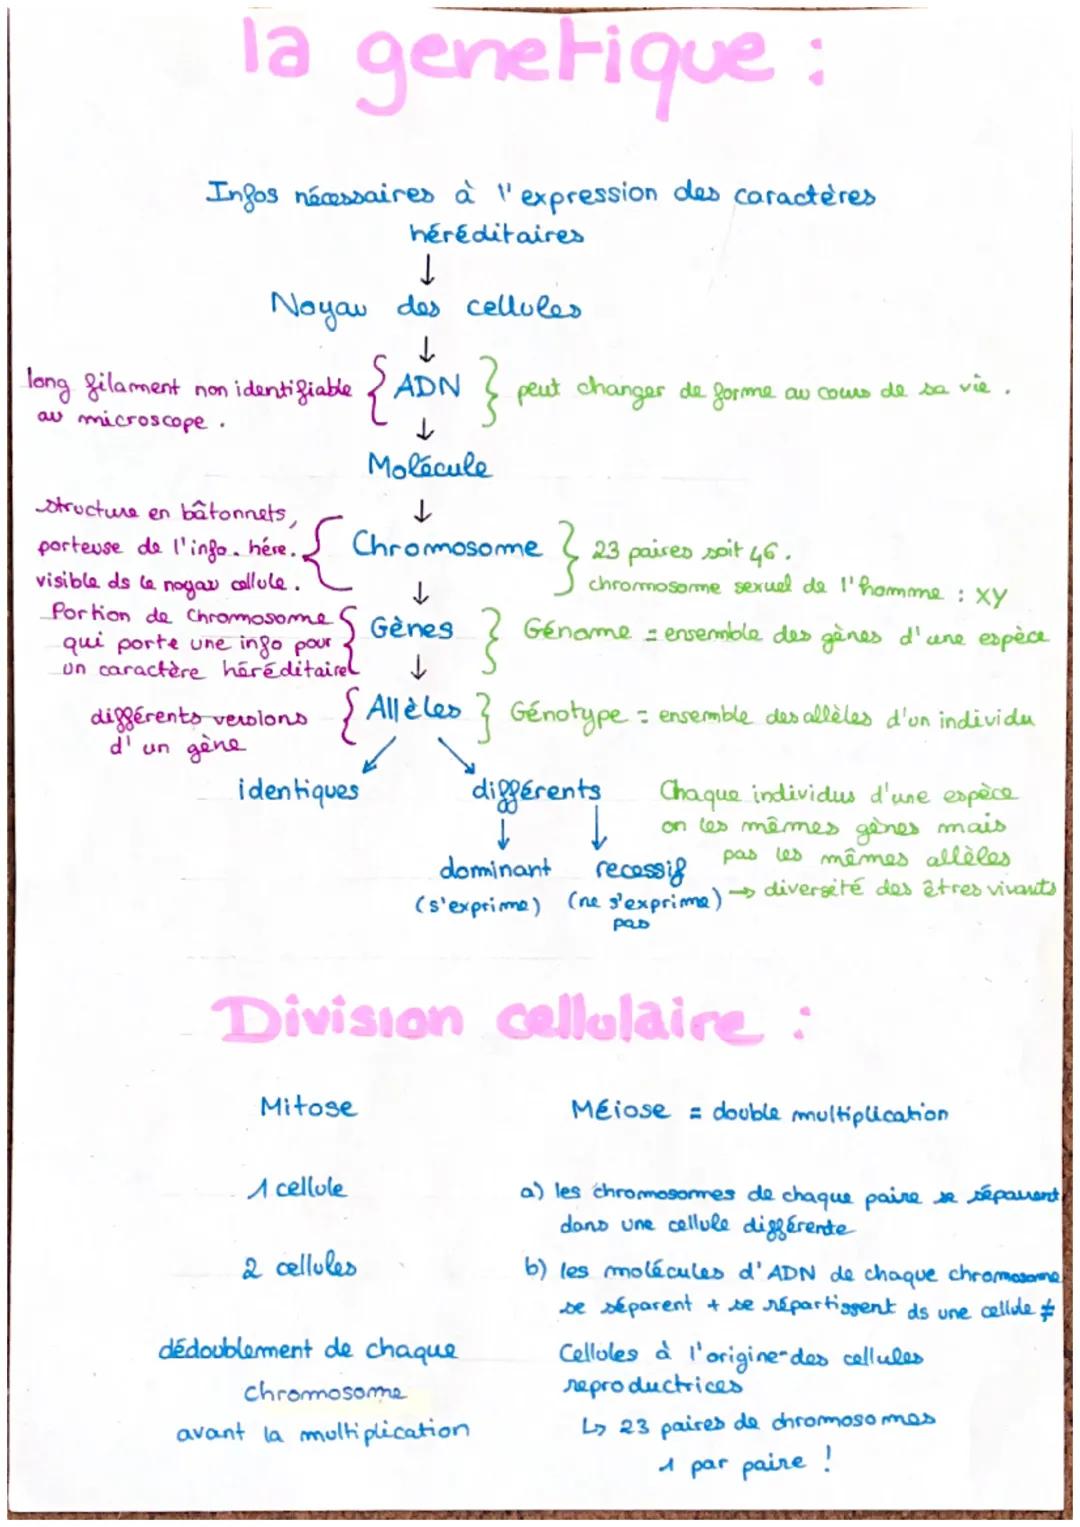 la genetique :
Infos nécessaires à l'expression des caractères
héréditaires
↓
Noyau des cellules
↓
long filament non identifiable { ADN } peut changer de forme au cours de sa vie .
au microscope .
↓
Molécule
↓
structure en bâtonnets,
porteuse de l'info. hére. { Chromosome } 23 paires soit 46.
visible ds le noyau cellule . chromosome sexuel de l'homme : XY
↓
Portion de Chromosome
qui porte une info pour { Gènes } Génome = ensemble des gènes d'une espèce
un caractère héréditaire
↓
différents versions { Allèles } Génotype = ensemble des allèles d'un individu
d'un gène
identiques différents
Chaque individus d'une espèce
on les mêmes gènes mais
pas les mêmes allèles
→ diversité des êtres vivants
↓ ↓
dominant recessif
(s'exprime) (ne s'exprime)
pas
Division cellulaire :
Mitose
1 cellule
2 cellules
dédoublement de chaque
chromosome
avant la multiplication
Méiose = double multiplication
a) les chromosomes de chaque paire se séparent
dans une cellule différente
b) les molécules d'ADN de chaque chromosome
se séparent + se répartissent ds une cellule ≠
Cellules à l'origine des cellules
reproductrices
↳ 23 paires de chromosomes
1 par paire !